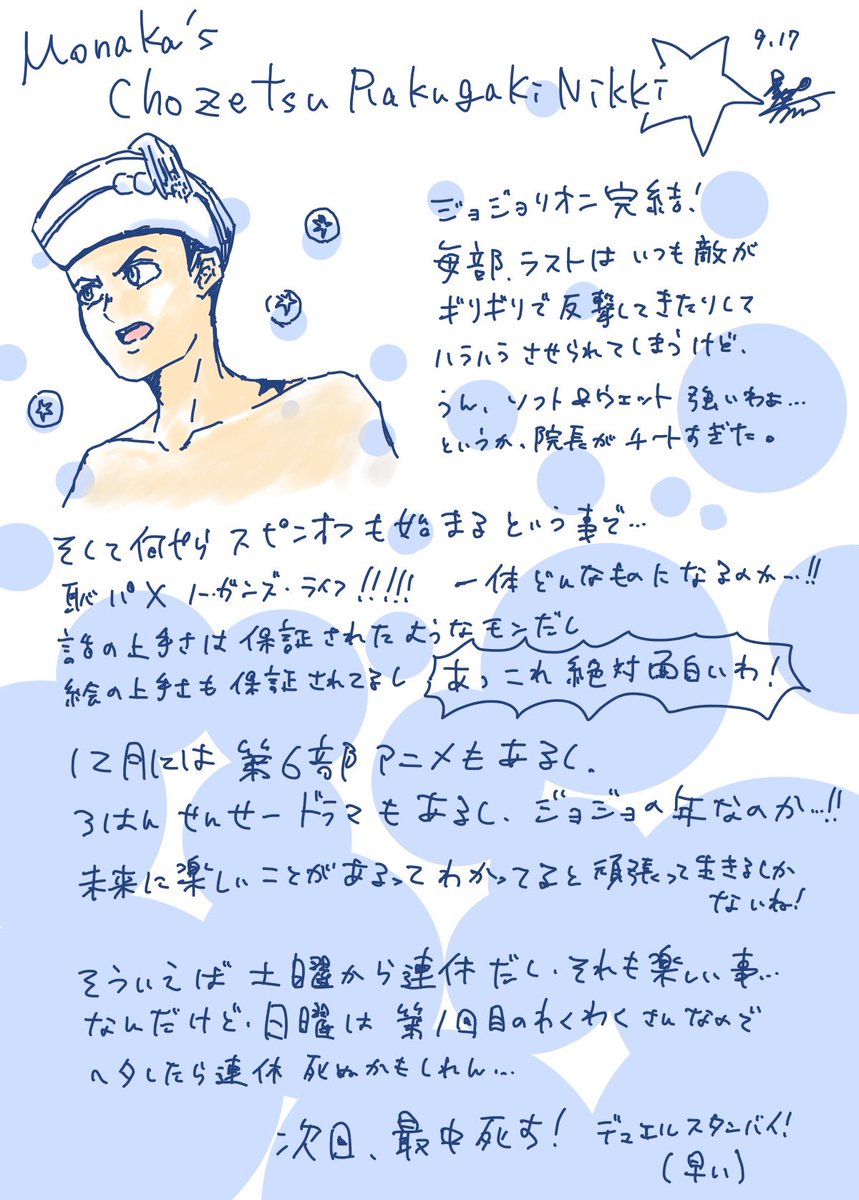 Monaka's
Chozetsu Rakugaki Nikki
9.17
ジョジョリオン完結!
毎部、ラストはいつも敵が
ギリギリで反撃してきたりして
ハラハラさせられてしまうけど、
うん、ソフト&ウェット強いわぁ…
というか、院長がチートすぎた。
そして何やらスピンオフも始まるという事で…
恥パ×ノー・ガンズ・ライフ!!!!! 一体どんなものになるのか…!!
話の上手さは保証されたようなモンだし
絵の上手さも保証されてるし
あっこれ絶対面白いわ!
12月には第6部アニメもあるし、
ろはんせんせードラマもあるし、ジョジョの年なのか…!!
未来に楽しいことがあるってわかってると頑張って生きるしか
ないね!
そういえば土曜から連休だし、それも楽しい事…
なんだけど、日曜は第1回目のわくわくさんなので
ヘタしたら連休死ぬかもしれん…
次回、最中死す! デュエルスタンバイ!
(早い)